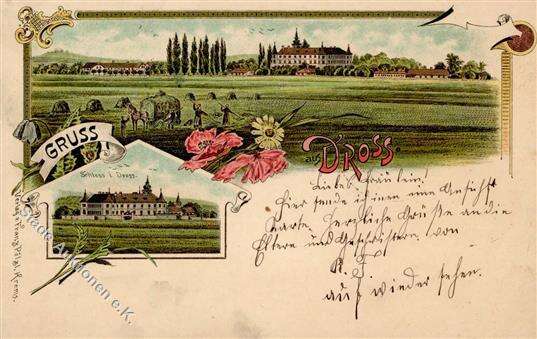 GRUSS
aus DROSS
Schloss i. Dross.
Liebes Fräulein!
Hier sende ihnen eine Ansicht
Karte. Herzliche Grüße an die
Eltern und Geschwistern. von
auf wieder sehen.
Verlag v. Franz Krems.
Stade Auktionen e.K.